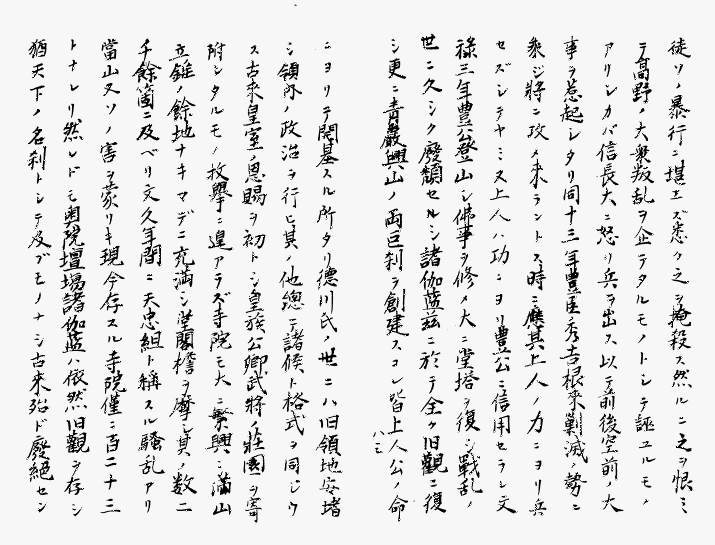 徒ソノ暴行ニ堪エズ悉ク之ヲ掩殺ス然ルニ之ヲ恨ミ
テ髙野ノ大衆叛乱ヲ企テタルモノトシテ誣ユルモノ
アリシカバ信長大ニ怒リ兵ヲ出ス以テ前後空前ノ大
事ヲ惹起シタリ同十三年豊臣秀吉根来剿滅ノ勢ニ
乘ジ將ニ攻メ来ラントス時ニ應其上人ノ力ニヨリ兵
セズシテヤミヌ上人ハ功ニヨリ豊公ニ信用セラレ文
禄三年豊公登山シ佛事ヲ修メ大ニ堂塔ヲ復シ戰乱ノ
世ニ久シク廢頽セルシ諸伽藍茲ニ於テ全ク旧觀ニ復
シ更ニ青巖興山ノ両巨刹ヲ創建スコレ皆上人公ノ命
ハミ
ニヨリテ開基スル所タリ徳川氏ノ世ニハ旧領地安堵
シ領外ノ政治ヲ行ヒ其ノ他總テ諸候ト格式ヲ同ジウ
ス古来皇室ノ恩賜ヲ初トシ皇族公卿武將ノ荘園ヲ寄
附シタルモノ枚擧ニ遑アラズ寺院モ大ニ繁興シ滿山
立錐ノ餘地ナキマデニ充滿シ堂閣檐ヲ摩シ其ノ数二
千餘箇ニ及ベリ文久年間ニ天忠組ト稱スル騒乱アリ
當山又ソノ害ヲ蒙リキ現今存スル寺院僅ニ百二十三
トナレリ然レドモ奥院壇場諸伽藍ハ依然旧觀ヲ存シ
猶天下ノ名刹トシテ及ブモノナシ古来殆ド廢絶セン